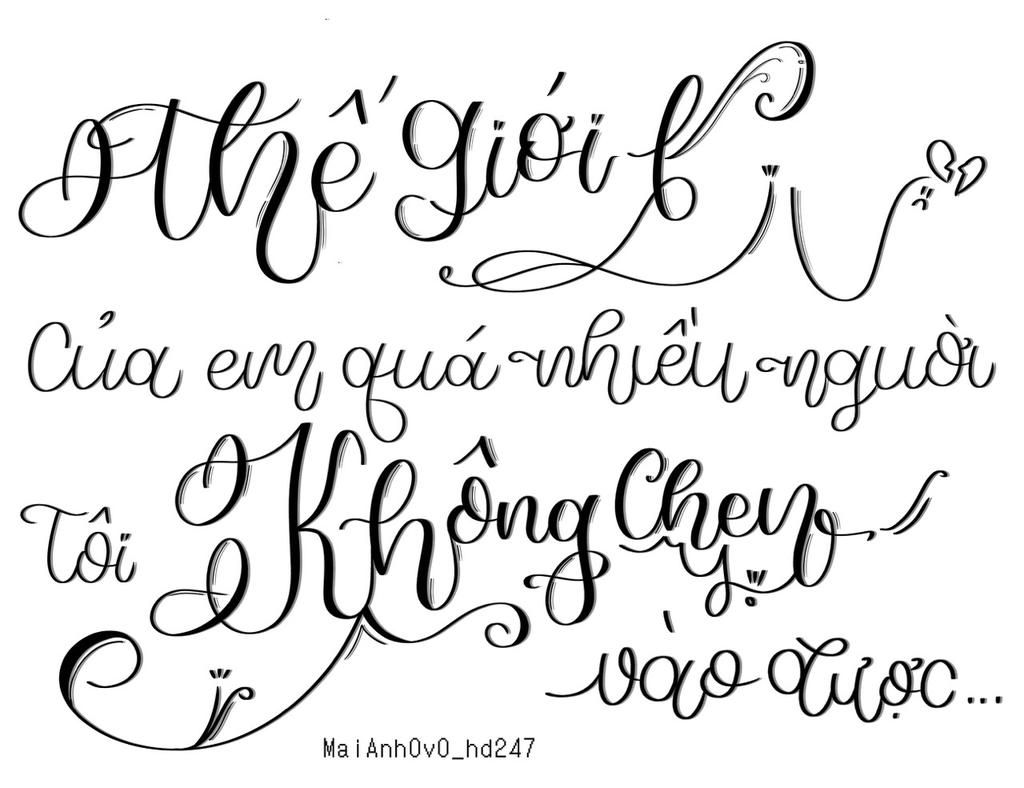 thế giới
Của em quá nhiều người
Tôi Không Chen
vào được...
MaiAnhOvO_hd247